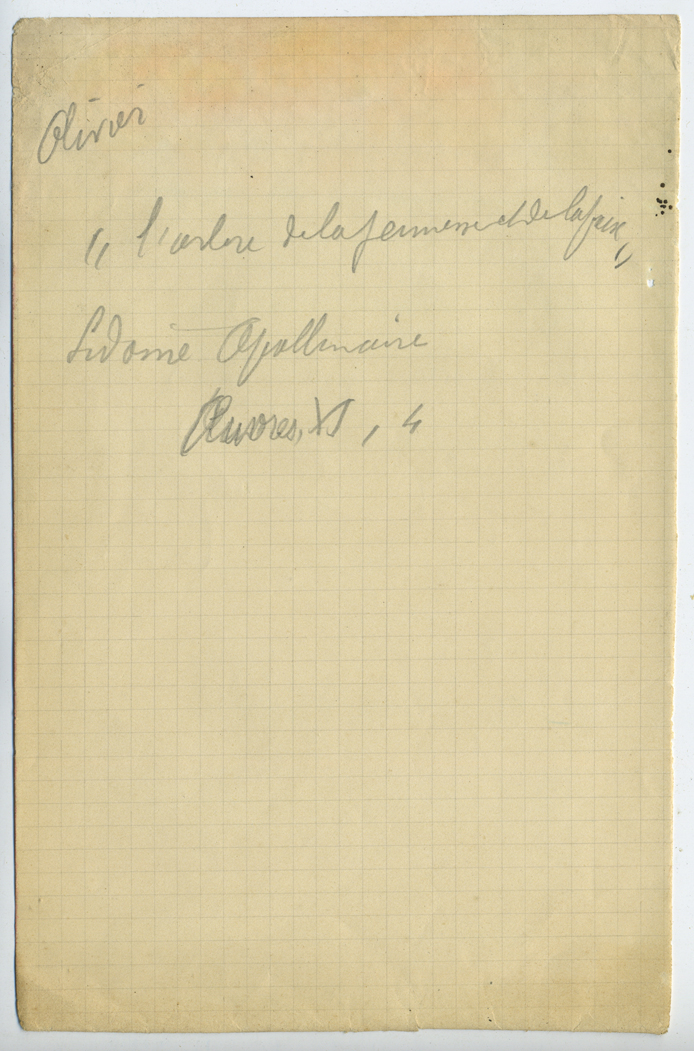 Olivier
"l'arbre de la jeunesse et de la paix"
Sidoine Apollinaire
Œuvres, XI, 4